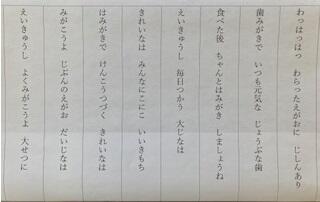 わっはっはっ わらったえがおに じしんあり
歯みがきで いつも元気な じょうぶな歯
食べた後 ちゃんとはみがき しましょうね
えいきゅうし 毎日つかう 大じなは
きれいなは みんなにこにこ いいきもち
はみがきで けんこうつづく きれいなは
みがこうよ じぶんのえがお だいじなは
えいきゅうし よくみがこうよ 大せつに